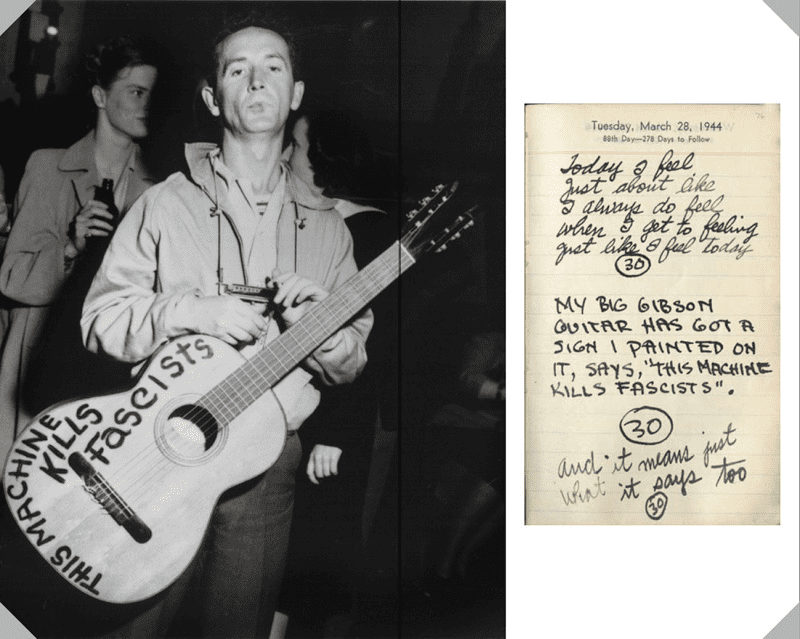 THIS MACHINE
KILLS
Fascists
Tuesday, March 28, 1944
88th Day—278 Days to Follow
Today I feel
just about like
I always do feel
when I get to feeling
just like I feel today
30
MY BIG GIBSON
GUITAR HAS GOT A
SIGN I PAINTED ON
IT, SAYS, "THIS MACHINE
KILLS FASCISTS".
30
and it means just
what it says too
30